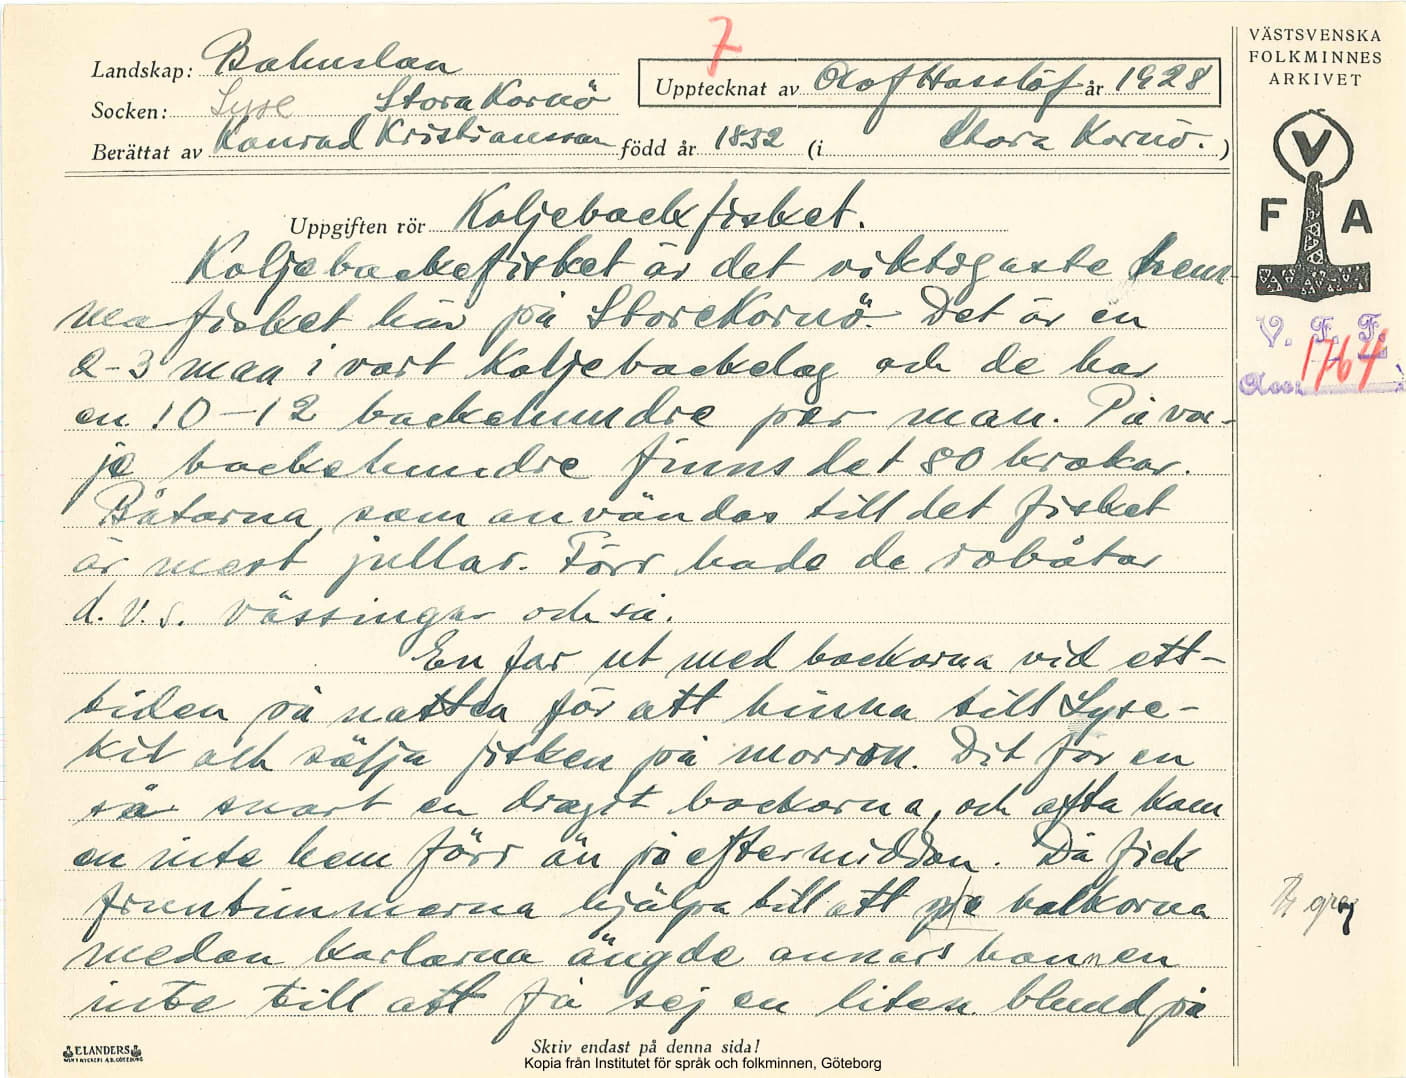 7
Landskap: Bohuslän
Socken: Lyse Stora Kornö
Upptecknat av Olof Hasslöf år 1928
Berättat av Konrad Kristiansson född år 1832 (i Stora Kornö.)
VÄSTSVENSKA
FOLKMINNES
ARKIVET
V
F A
V. F. F.
1764
Uppgiften rör Koljebackfisket.
Koljebackefisket är det viktigaste hem-
mafisket här på StoreKornö. Det är en
2-3 man i vart Koljebackelag och de har
en 10-12 backehundre per man. På var-
je backehundre finns det 80 krokar.
Båtarna, som användas till det fisket
är mest jullar. Förr hade de robåtar
d.v.s. vässingar och så.
En far ut med backorna vid ett-
tiden på natten för att hinna till Lyse-
kil och sälja fisken på morron. Dit for en
så snart en dragit backorna, och ofta kom
en inte hem förr än på eftermiddan. Då fick
fruntimmerna hjälpa till att backorna
medan karlarna ängde annars hannen
inte till att få sej en liten blund på
ELANDERS
Skriv endast på denna sida!
Kopia från Institutet för språk och folkminnen, Göteborg